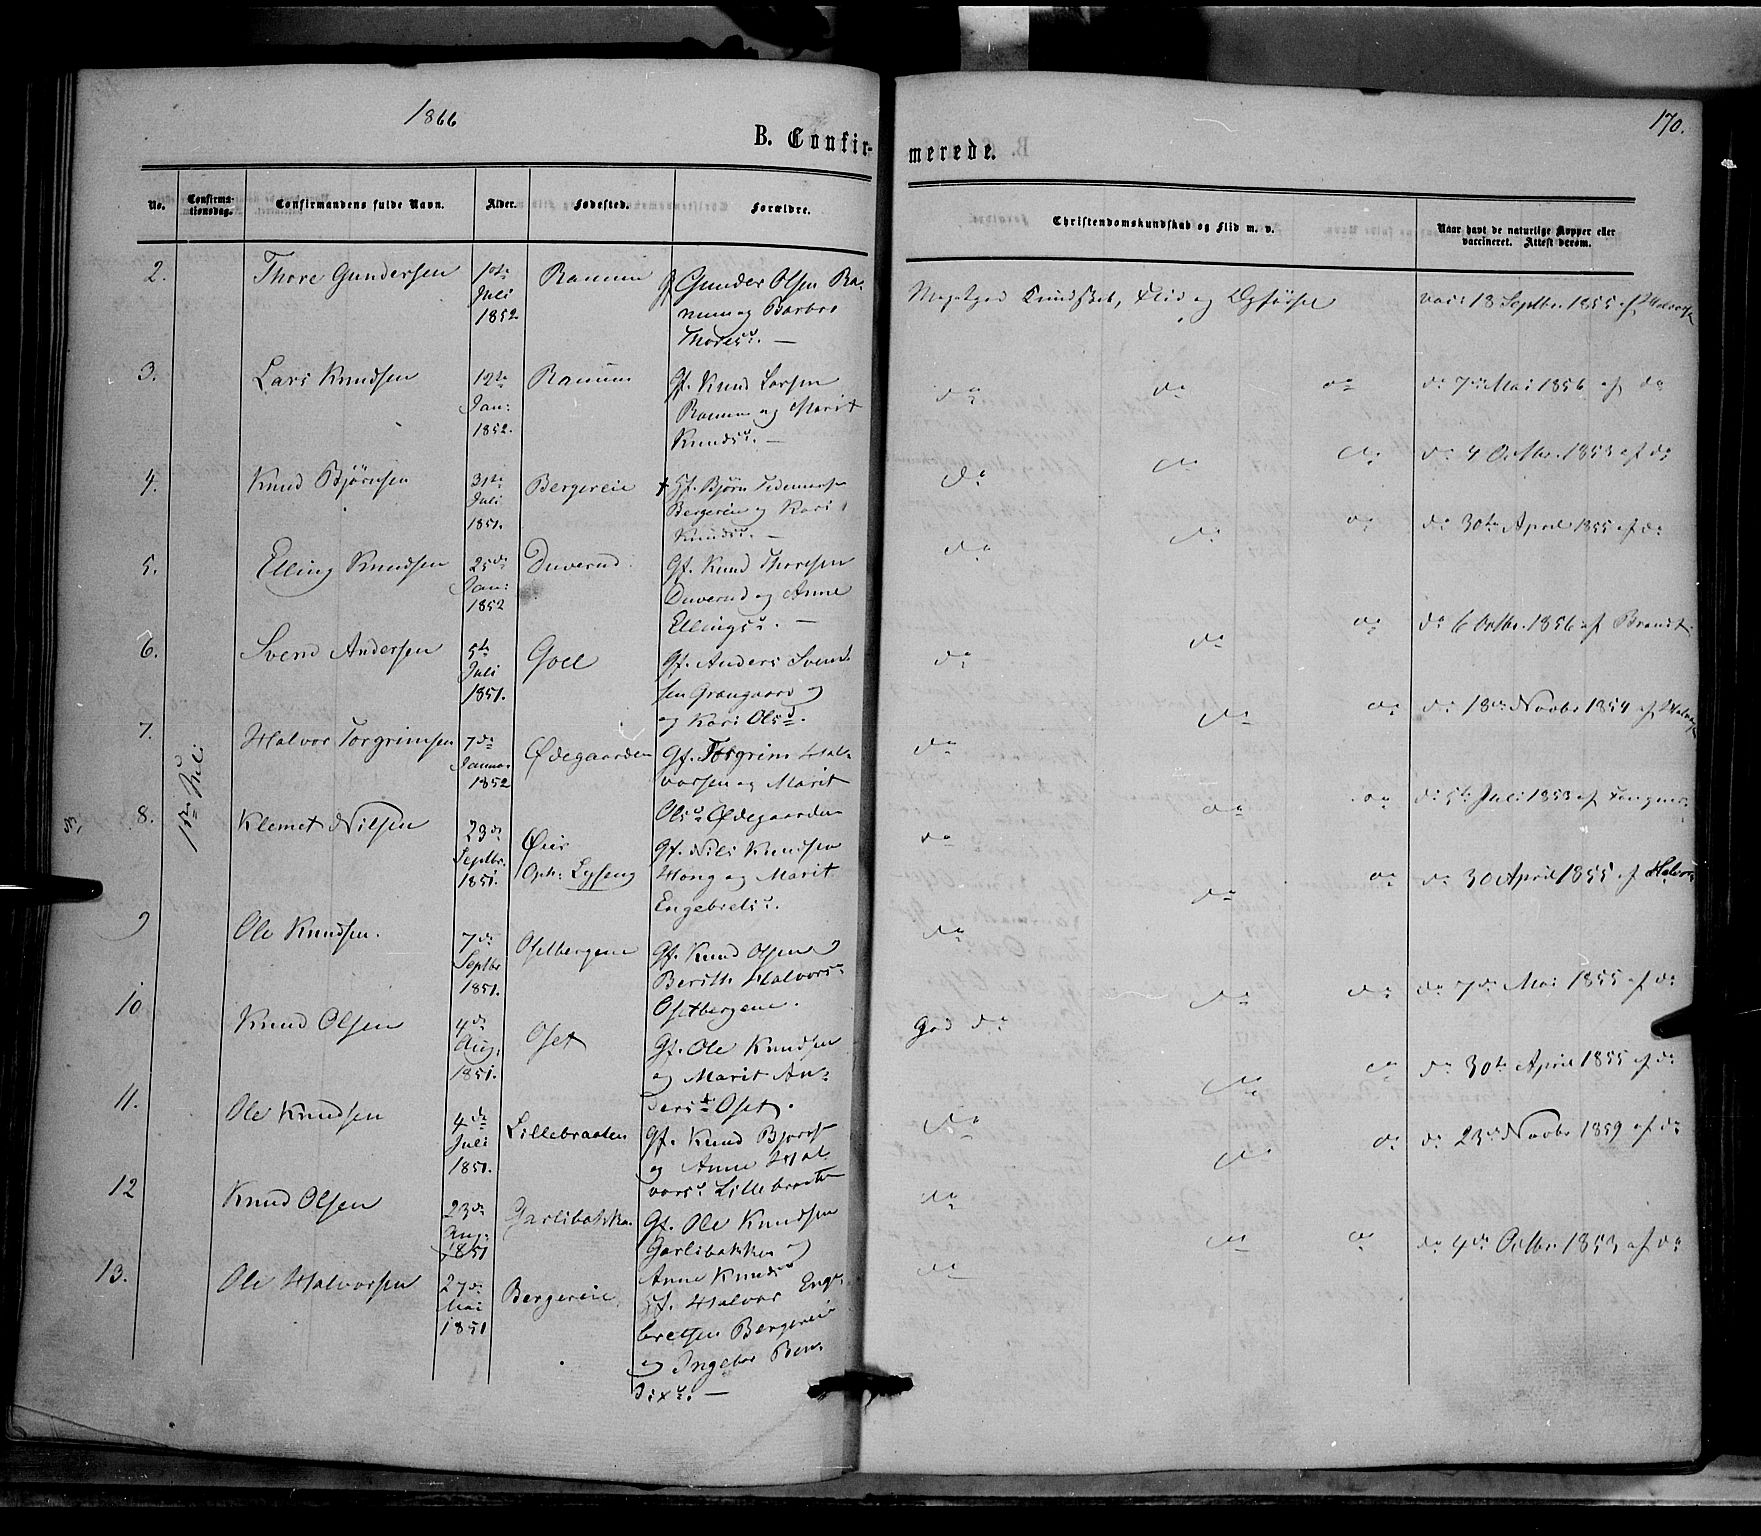 1866
170.
B. Confir-
merede.
No.
Confirma-
tionsdag.
Confirmandens fulde Navn.
Alder.
Fødested.
Forældre.
Christendomskundskab og Flid m. v.
Naar havt de naturlige Kopper eller
vaccineret. Attest derom.
1ste Juli
2.
Thore Gundersen
1ste
Juli
1852
Ranum
Gunder Olsen Ra-
num og Barbro
Thoresd. —
Meget god Kundskab, Flid og Opførsel
vacc 18 Septbr. 1855 af
3.
Lars Knudsen
12te
Jan:
1852.
Ranum
Gf. Knud Larsen
Ranum og Marit
Knudsd. —
do do do
do 7de Mai 1856 af do
4.
Knud Bjørnsen
31te
Juli
1851.
Bergereie
Gf. Bjørn
Bergereie og Kari
Knudsd. —
do do do
do 4 Octbr. 1853 af do
5.
Elling Knudsen
25de
Jan:
1852
Duverud.
Gf. Knud Thoresen
Duverud og Anne
Ellingsd. —
do do do
do 30te April 1855 af do
6.
Svend Andersen
5te
Juli
1851.
Goll
Gf. Anders Svend-
sen Grangaard og
og Kari Olsd.
do do do
do 6 Octbr. 1856 af Brandt
7.
Halvor Torgrimsen
7de
Januar
1852
Ødegaarden
Gf. Torgrim Hal-
vorsen og Marit
Olsd Ødegaarden
do do do
do 18de Novbr 1854 af
8.
Klemet Nilsen
23de
Septbr.
1851.
Øier
Oph: Lyseng
Gf. Nils Knudsen
Haug og Marit
Engebretsd.
do do do
do 5te Juli 1853 af
9
Ole Knudsen.
7de
Septbr
1851.
Osetbergene
Gf. Knud Olsen
Berith Halvorsd
Osetbergene.
do do do
do 30 April 1855 af
10
Knud Olsen
4de
Aug.
1851.
Oset
Gf. Ole Knudsen
og Marit An-
dersd Oset.
God do do do
do 7de Mai 1855 af do
11.
Ole Knudsen
4de
Juli
1851.
Lillebraaten
Gf. Knud
og Anne Hal-
vorsd Lillebraaten
do do do
do 30te April 1855 af do
12
Knud Olsen
23de
Aug:
1851
Garlibakken
Gf. Ole Knudsen
Garlibakken og
Anne Knudsd
do do do
do 23de Novbr 1859 af do
13.
Ole Halvorsen
27de
Mai
1851
Bergereie
Gf. Halvor Enge-
bretsen Bergereie
og Ingebor Ben-
dixd. —
do do do
do 4de Octbr. 1853 af do